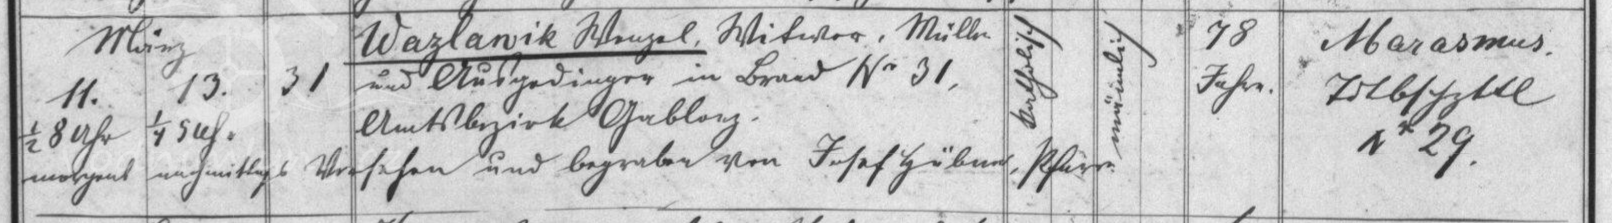 März
11. 13. 31 Wazlawik Wenzel, Witwer, Müller
und Ausgedinger in Brand No 31,
Amtsbezirk Gablonz.
½ 8 Uhr ¼ 5 Uhr
morgens nachmittags Versehen und begraben von Josef Hübner, Pfarrer.
katholisch
männlich
78
Jahre.
Marasmus.
Totbschzttl
No 29.